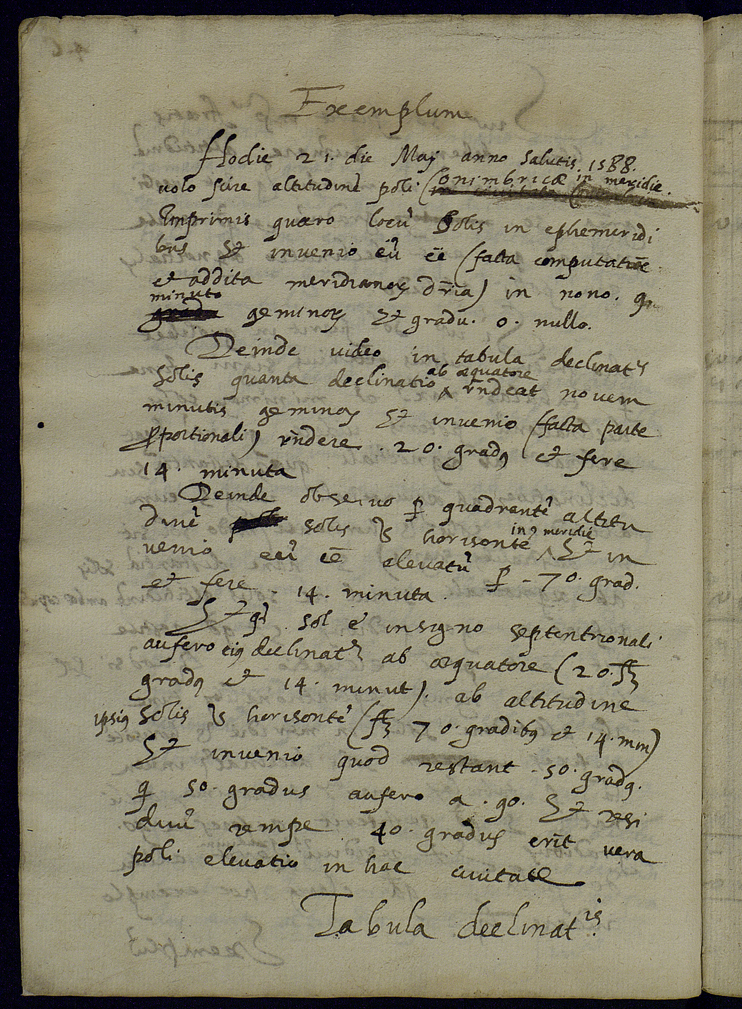 Exemplum
Hodie 21. die Maij anno salutis 1588.
uolo scire altitudinē poli Conimbricæ in meridie.
Imprimis quæro locū Solis in ephemeridi
bus Et inuenio eū eē (facta computatiōe
et addita meridianoꝝ dr̄ia) in nono.
minuto geminoꝝ Et gradu. 0. nullo.
Deinde uideo in tabula declinatꝭ
Solis quanta declinatio ab æquatore r̄ndeat nouem
minutis geminoꝝ Et inuenio (facta parte
ꝓportionali) r̄ndere. 20. gradꝰ et fere
14. minuta
Deinde obseruo ꝑ quadrantē altitu
dinē solis horisontē in meridie Et in
uenio eū eē eleuatū ꝑ - 70. grad.
et fere - 14. minuta.
Et sol ē in signo septentrionali
aufero eiꝰ declinatꝭ ab æquatore (20.
gradꝰ et 14. minut). ab altitudine
ipsiꝰ Solis horisontē ( 70. gradibꝰ et 14. min)
Et inuenio quod restant. 50. gradꝰ.
50. gradus aufero a. 90. Et resi
duū nempe 40. gradus erit uera
poli eleuatio in hac ciuitate.
Tabula declinatis.